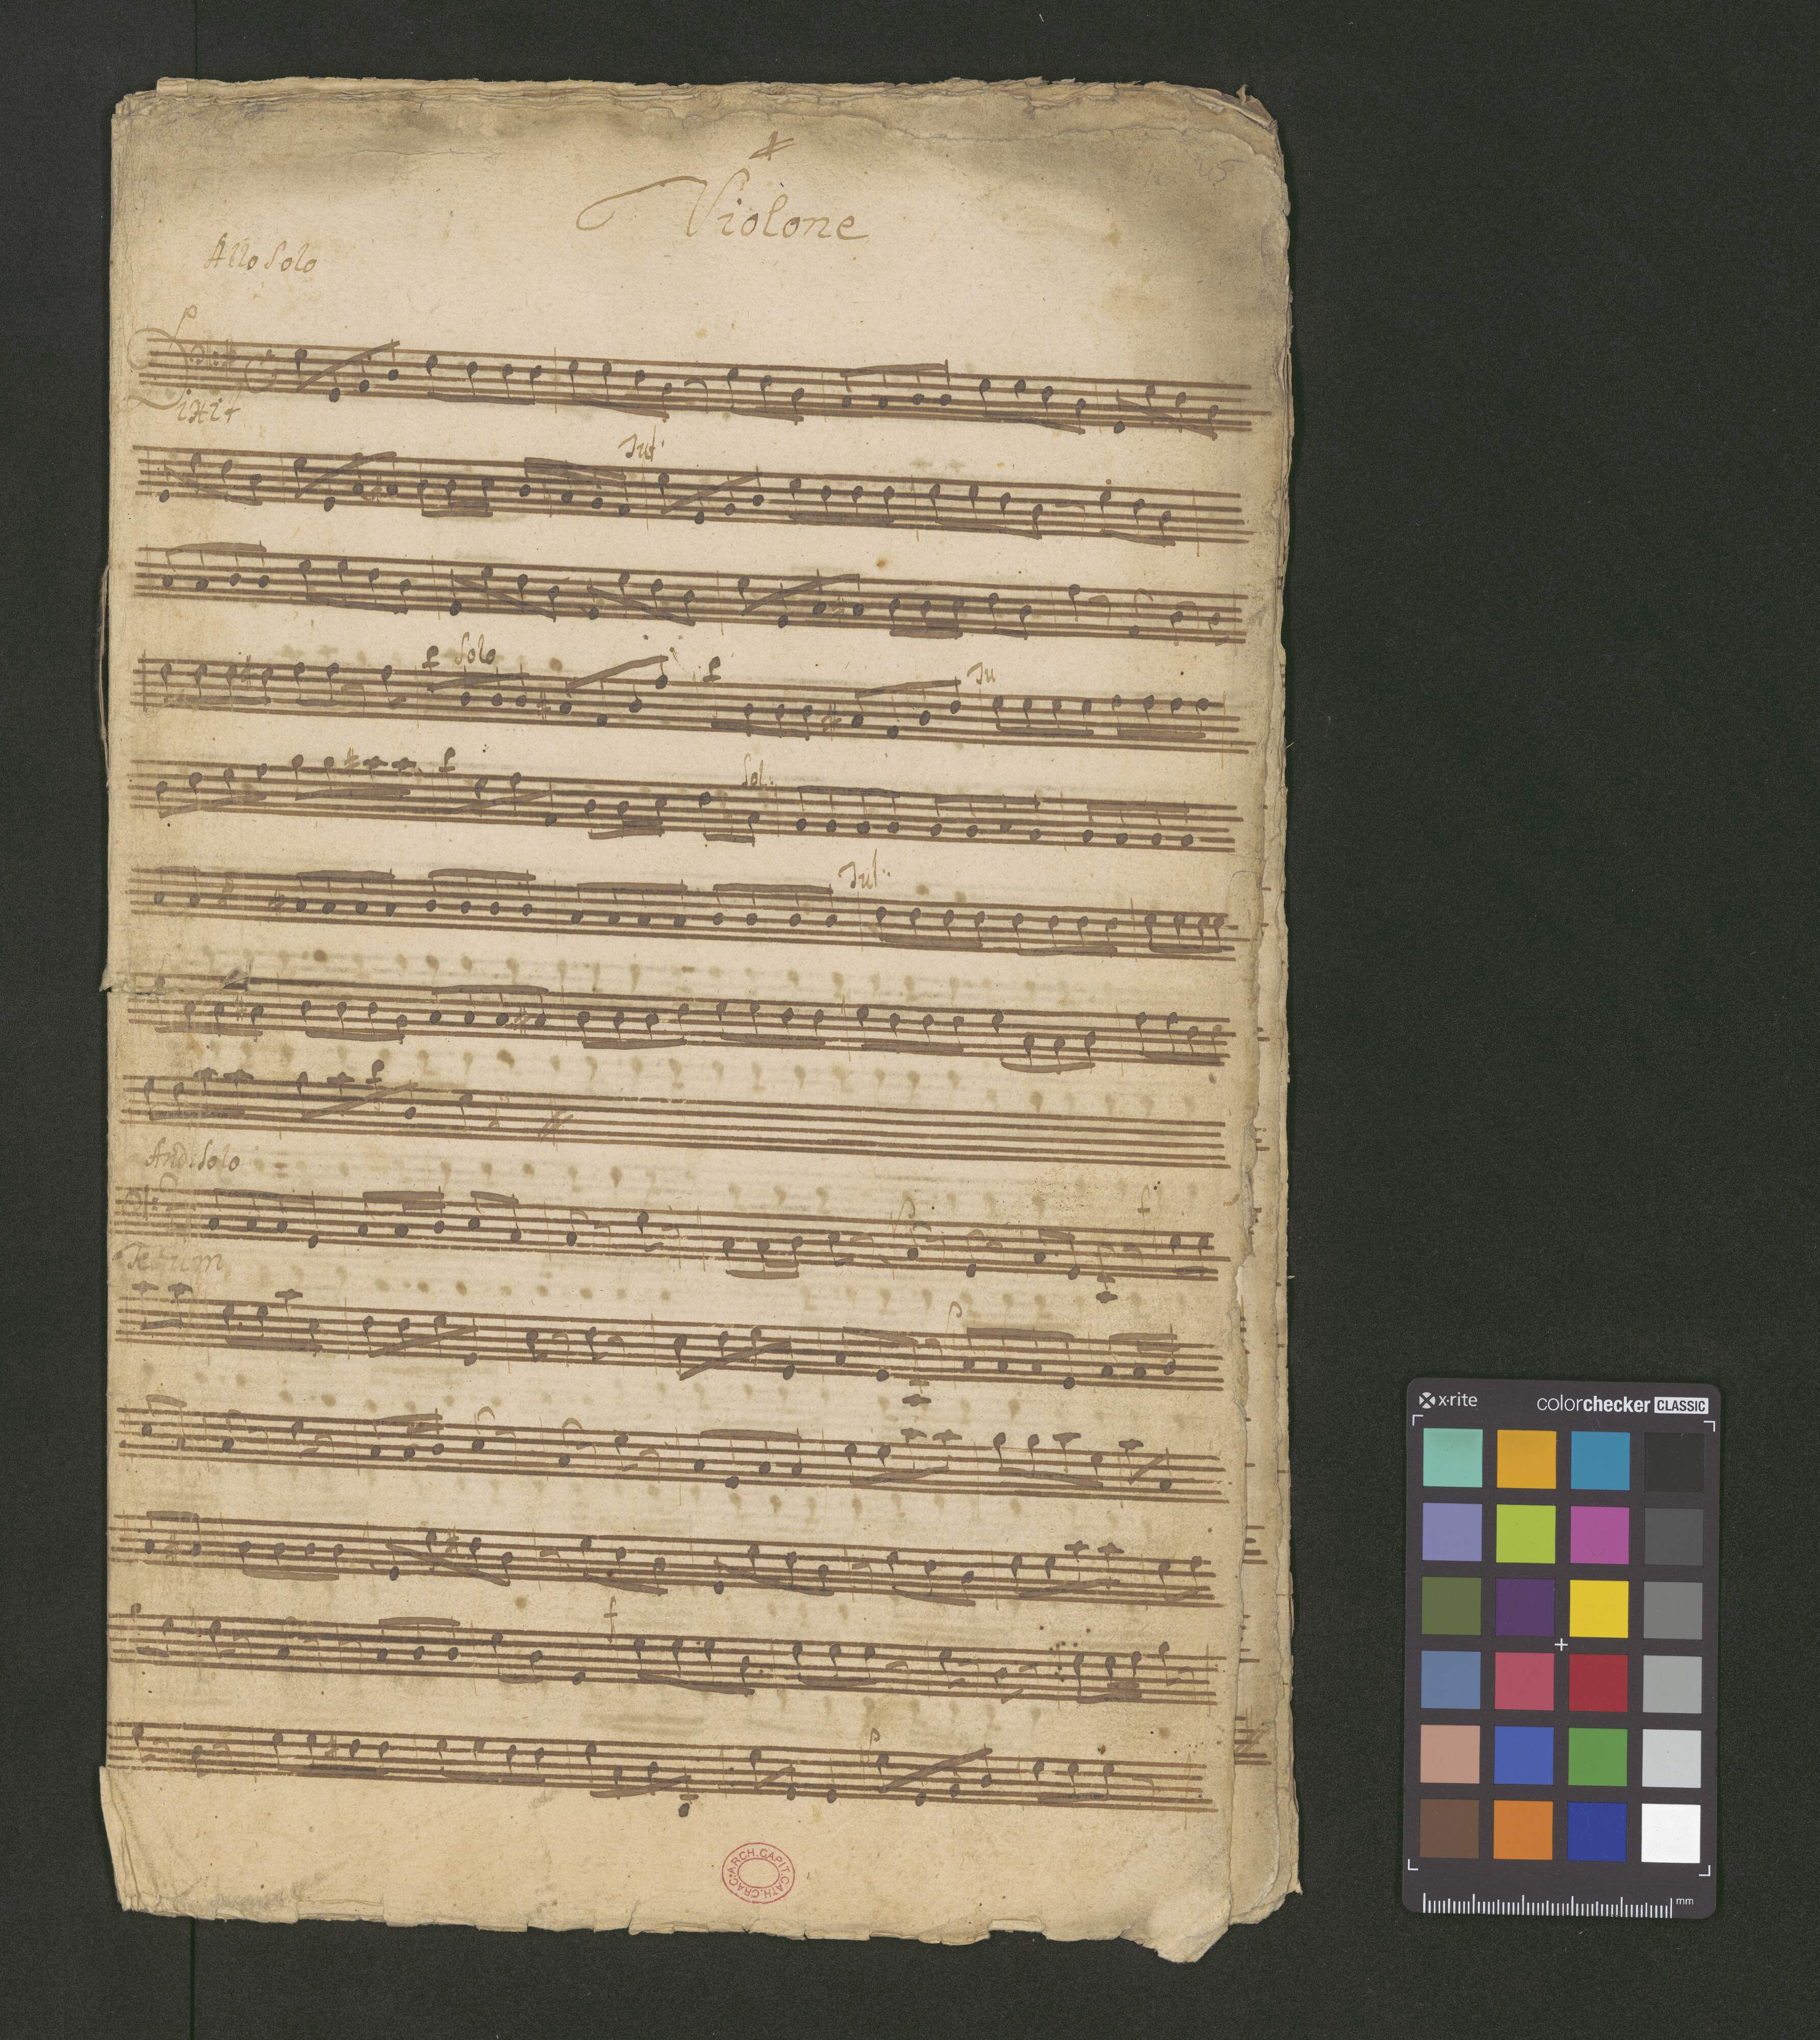 Violone
Allo Solo
Dixit
Tut
f Solo f Tu
Sol:
Tut:
And: Solo
p f
Tecum
p
f
p
ARCH. CAPIT. CATH. CRAC.
x·rite colorchecker CLASSIC
mm